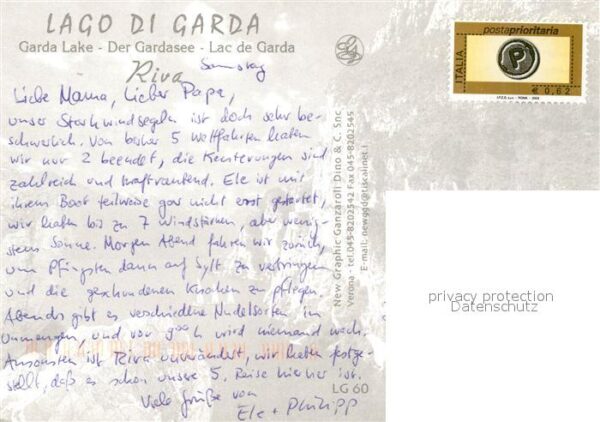 LAGO DI GARDA
Garda Lake - Der Gardasee - Lac de Garda
Riva
Samstag
Liebe Mama, Lieber Papa,
unser Starkwindsegeln ist doch sehr be-
schwerlich. Von bisher 5 Wettfahrten haben
wir nur 2 beendet, die Kenterungen sind
zahlreich und kraftraubend. Ele ist mit
ihrem Boot teilweise gar nicht erst gestartet,
wir hatten bis zu 7 Windstärken, aber wenig-
stens Sonne. Morgen Abend fahren wir zurück,
um Pfingsten dann auf Sylt zu verbringen
und die geschundenen Knochen zu pflegen.
Abends gibt es verschiedne Nudelsorten in
Unmengen, und vor 9 00 h wird niemand wach.
Ansonsten ist Riva unverändert, wir haben festge-
stellt, daß es schon unsere 5. Reise hierher ist.
Viele Grüße von
Ele + Philipp
New Graphic Ganzaroli Dino & C. Snc
Verona - tel.045-8202542 Fax 045-8202545
E-mail: newggd@tiscalinet.i
LG 60
ITALIA
postaprioritaria
P
€ 0,62
I.P.Z.S. S.p.A. - ROMA - 2004
privacy protection
Datenschutz